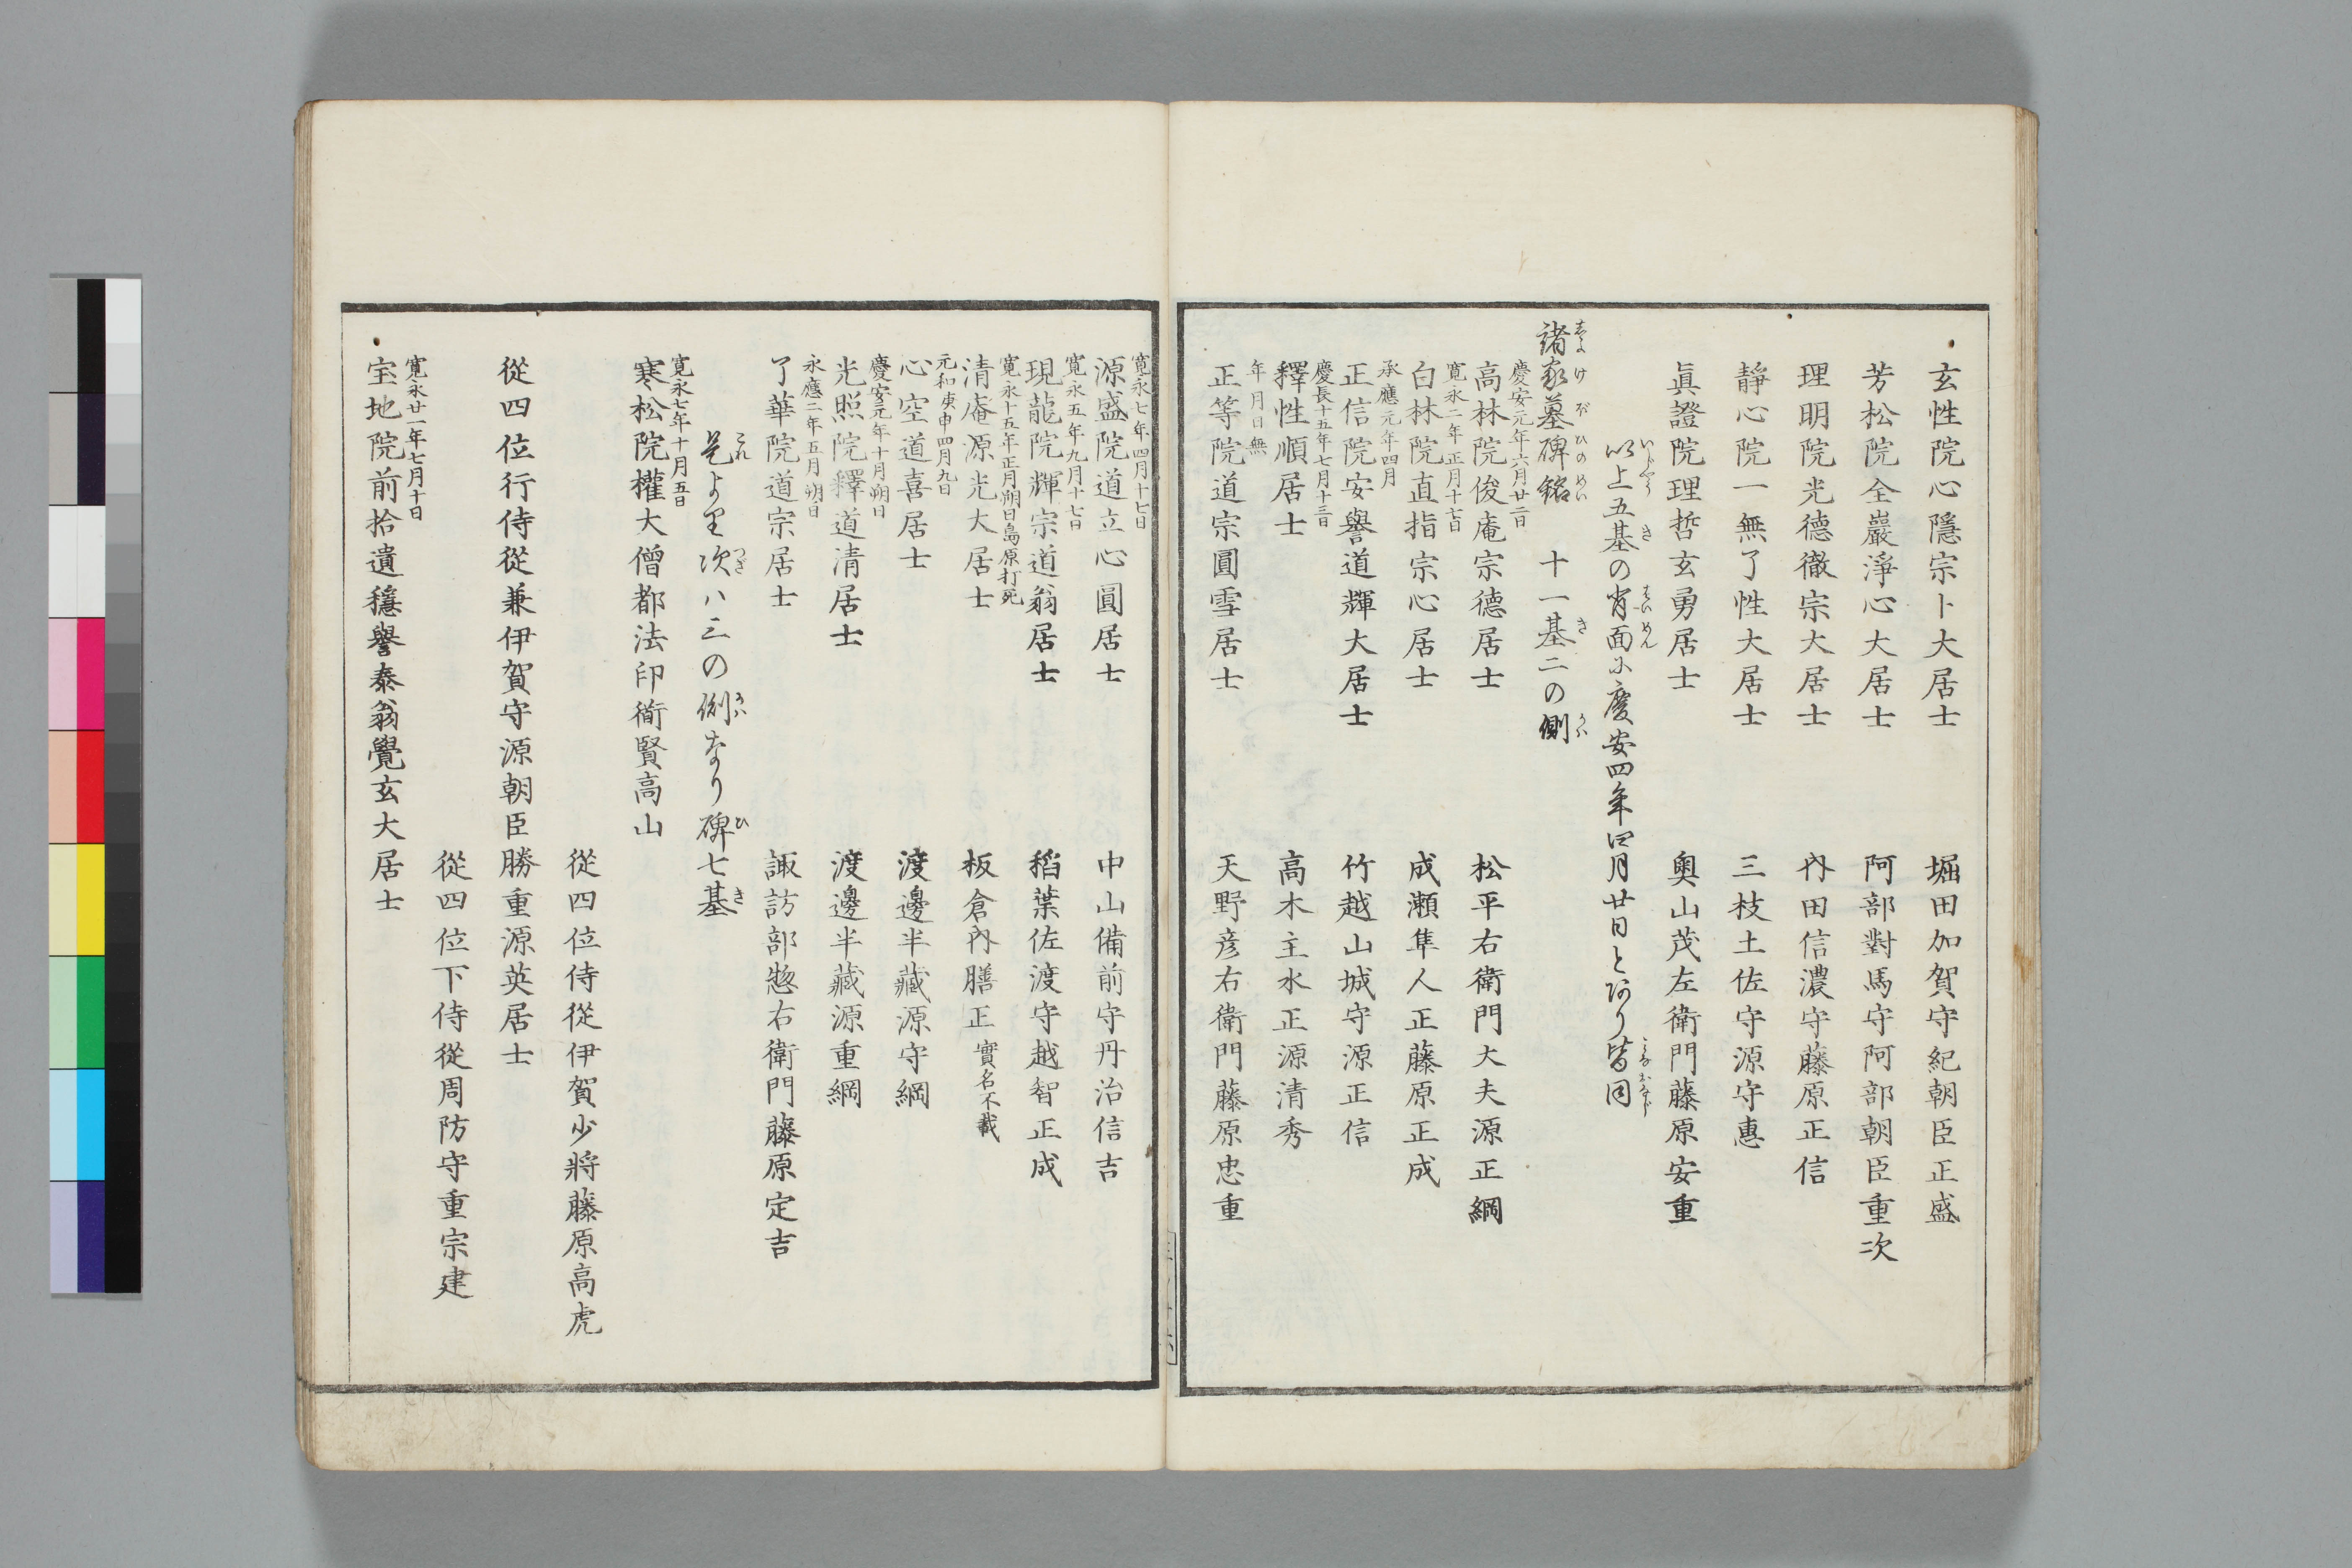 玄性院心隱宗卜大居士　堀田加賀守紀朝臣正盛
芳松院全巖淨心大居士　阿部對馬守阿部朝臣重次
理明院光德徹宗大居士　內田信濃守藤原正信
靜心院一無了性大居士　三枝土佐守源守惠
眞證院理哲玄勇居士　奧山茂左衛門藤原安重
以上五基の背面に慶安四年四月廿日とあり皆同
諸家墓碑銘　十一基二の側
慶安元年六月廿二日
高林院俊庵宗德居士　松平右衛門大夫源正綱
寛永二年正月十七日
白林院直指宗心居士　成瀬隼人正藤原正成
承應元年四月
正信院安譽道輝大居士　竹越山城守源正信
慶長十五年七月十三日
釋性順居士　高木主水正源清秀
年月日無
正等院道宗圓雪居士　天野彦右衛門藤原忠重
寛永七年四月十七日
源盛院道立心圓居士　中山備前守丹治信吉
寛永五年九月十七日
現龍院輝宗道翁居士　稻葉佐渡守越智正成
寛永十五年正月朔日島原打死
清庵源光大居士　板倉內膳正實名不載
元和庚申四月九日
心空道喜居士　渡邊半藏源守綱
慶安元年十月朔日
光照院釋道清居士　渡邊半藏源重綱
永應二年五月朔日
了華院道宗居士　諏訪部惣右衛門藤原定吉
是より次ハ三の側なり碑七基
寛永七年十月五日
寒松院權大僧都法印衜賢高山
從四位侍從伊賀少將藤原高虎
從四位行侍從兼伊賀守源朝臣勝重源英居士
從四位下侍從周防守重宗建
寛永廿一年七月十日
宝地院前拾遺穩譽泰翁覺玄大居士